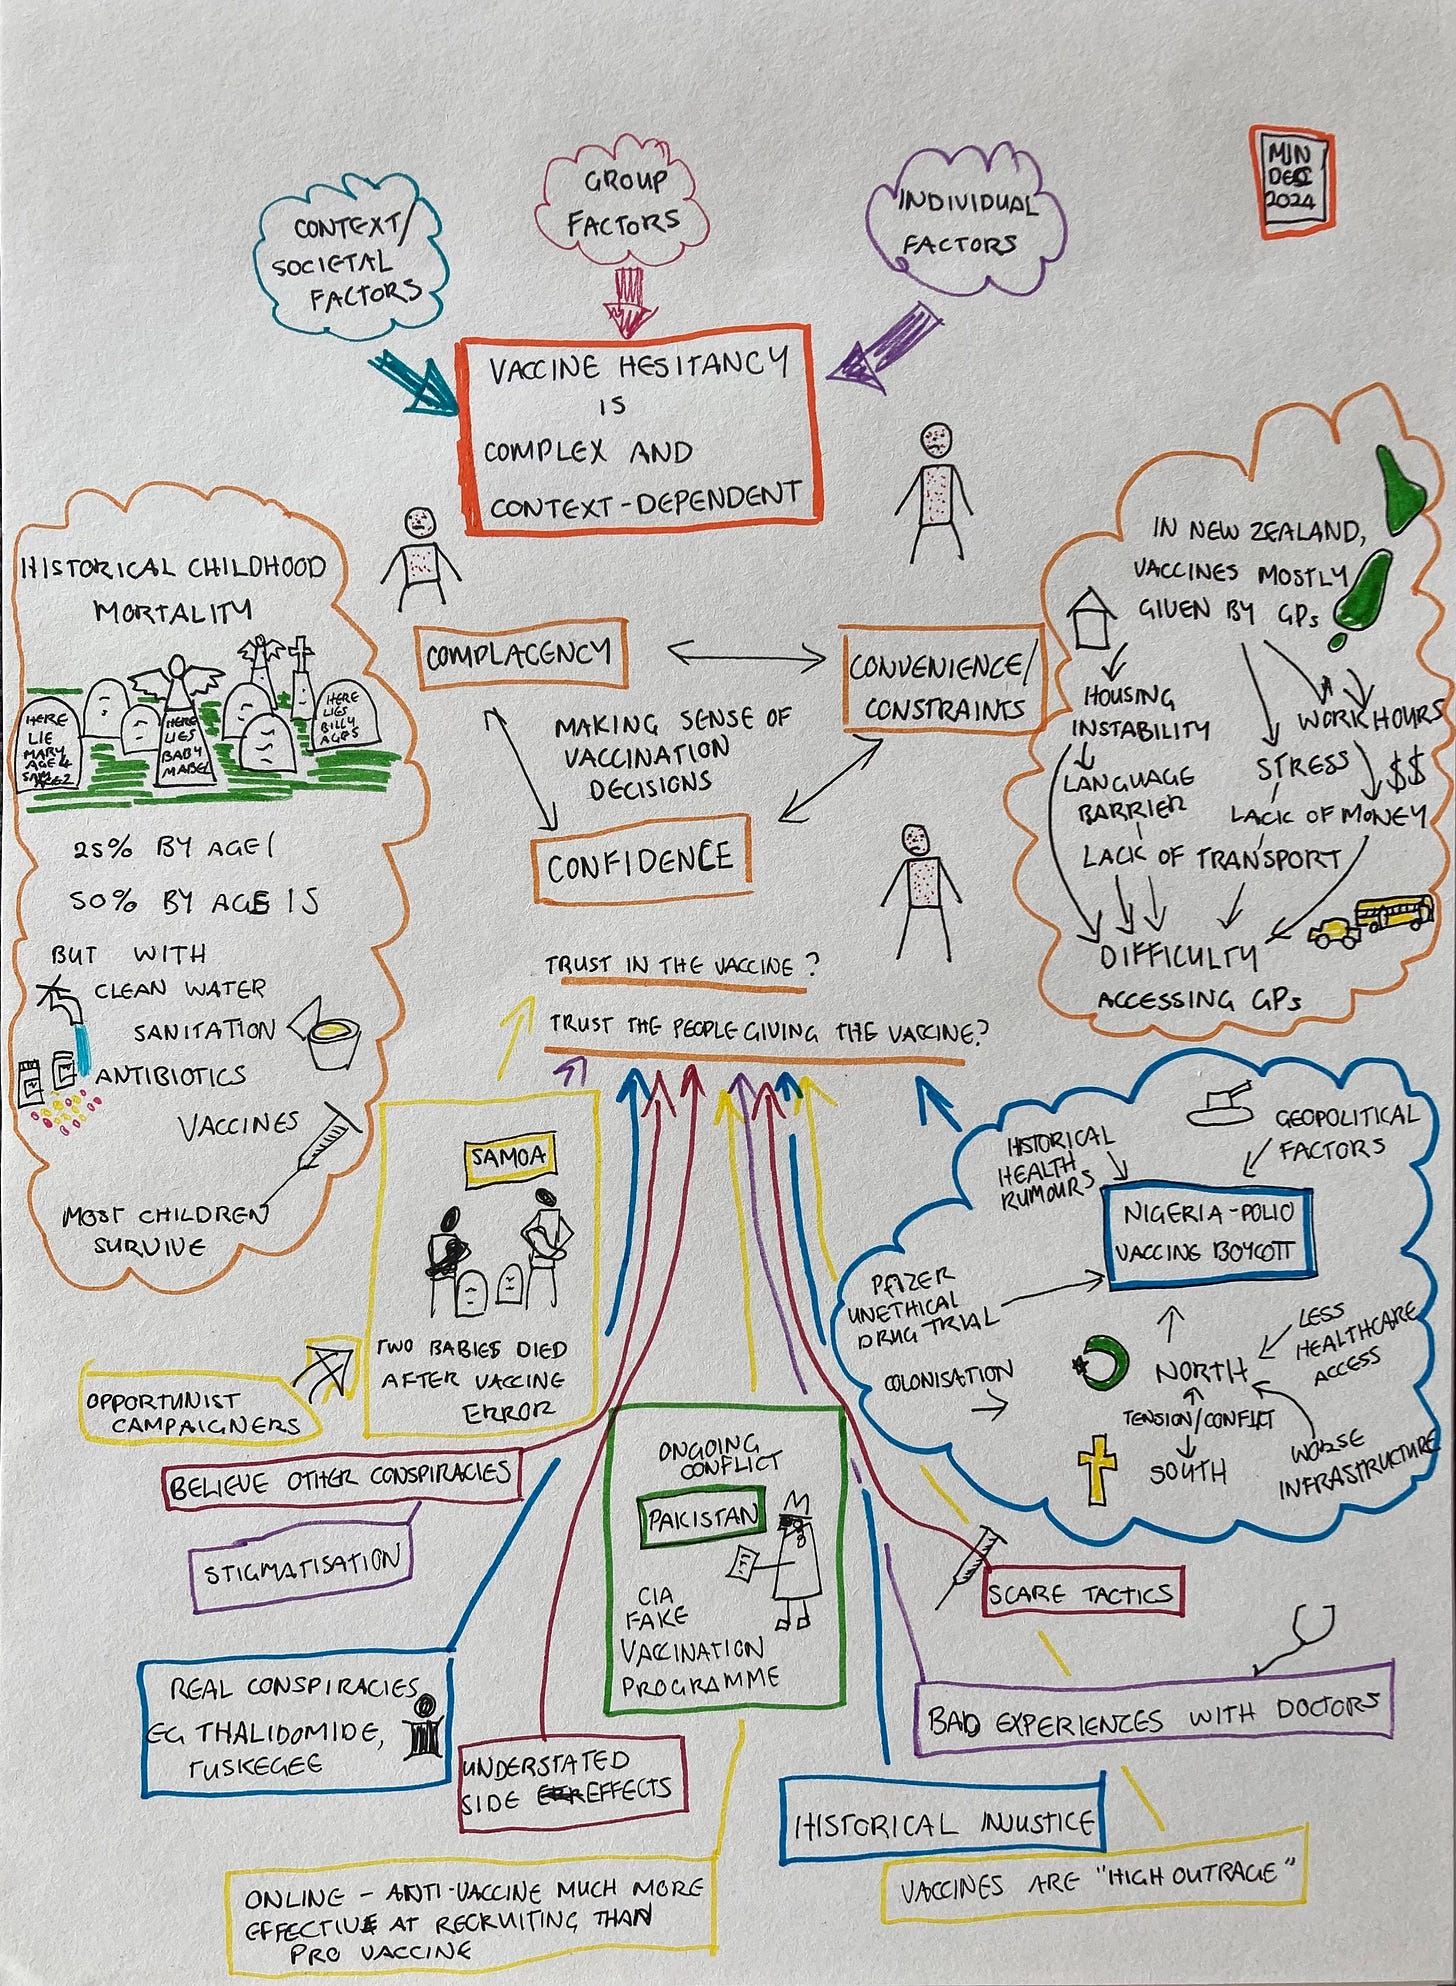 MJN
DEC
2024
CONTEXT/
SOCIETAL
FACTORS
GROUP
FACTORS
INDIVIDUAL
FACTORS
VACCINE HESITANCY
IS
COMPLEX AND
CONTEXT-DEPENDENT
HISTORICAL CHILDHOOD
MORTALITY
HERE
LIE
MARY
AGE 4
SAM
AGE 2
HERE
LIES
BABY
MABEL
HERE
LIES
BILLY
AGE 5
25% BY AGE 1
50% BY AGE 15
BUT WITH
CLEAN WATER
SANITATION
ANTIBIOTICS
VACCINES
MOST CHILDREN
SURVIVE
COMPLACENCY
CONVENIENCE/
CONSTRAINTS
MAKING SENSE OF
VACCINATION
DECISIONS
CONFIDENCE
TRUST IN THE VACCINE?
TRUST THE PEOPLE GIVING THE VACCINE?
IN NEW ZEALAND,
VACCINES MOSTLY
GIVEN BY GPs
HOUSING
INSTABILITY
WORK HOURS
LANGUAGE
BARRIER
STRESS
$$
LACK OF MONEY
LACK OF TRANSPORT
DIFFICULTY
ACCESSING GPs
SAMOA
TWO BABIES DIED
AFTER VACCINE
ERROR
OPPORTUNIST
CAMPAIGNERS
HISTORICAL
HEALTH
RUMOURS
GEOPOLITICAL
FACTORS
NIGERIA-POLIO
VACCINE BOYCOTT
PFIZER
UNETHICAL
DRUG TRIAL
COLONISATION
LESS
HEALTHCARE
ACCESS
NORTH
TENSION/CONFLICT
SOUTH
WORSE
INFRASTRUCTURE
BELIEVE OTHER CONSPIRACIES
STIGMATISATION
ONGOING
CONFLICT
PAKISTAN
CIA
FAKE
VACCINATION
PROGRAMME
SCARE TACTICS
REAL CONSPIRACIES
EG THALIDOMIDE,
TUSKEGEE
UNDERSTATED
SIDE EFFECTS
BAD EXPERIENCES WITH DOCTORS
HISTORICAL INJUSTICE
VACCINES ARE "HIGH OUTRAGE"
ONLINE - ANTI-VACCINE MUCH MORE
EFFECTIVE AT RECRUITING THAN
PRO VACCINE